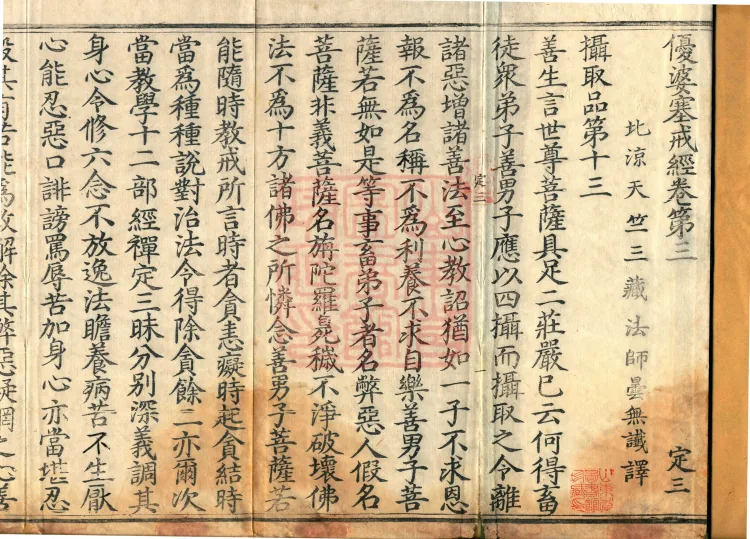 優婆塞戒經卷第三 定三
北涼天竺三藏法師曇無讖譯
攝取品第十三
善生言世尊菩薩具足二莊嚴已云何得畜
徒衆弟子善男子應以四攝而攝取之令離
定三
諸惡增諸善法至心教詔猶如一子不求恩
報不爲名稱不爲利養不求自樂善男子菩
薩若無如是等事畜弟子者名弊惡人假名
菩薩非義菩薩名旃陀羅臰穢不淨破壞佛
法不爲十方諸佛之所憐念善男子菩薩若
能隨時教戒所言時者貪恚癡時起貪結時
當爲種種說對治法令得除貪餘二亦爾次
當教學十二部經禪定三昧分別深義調其
身心令修六念不放逸法瞻養病苦不生猒
心能忍惡口誹謗罵辱苦加身心亦當堪忍
設其有苦能爲救解除其弊惡疑網之心善